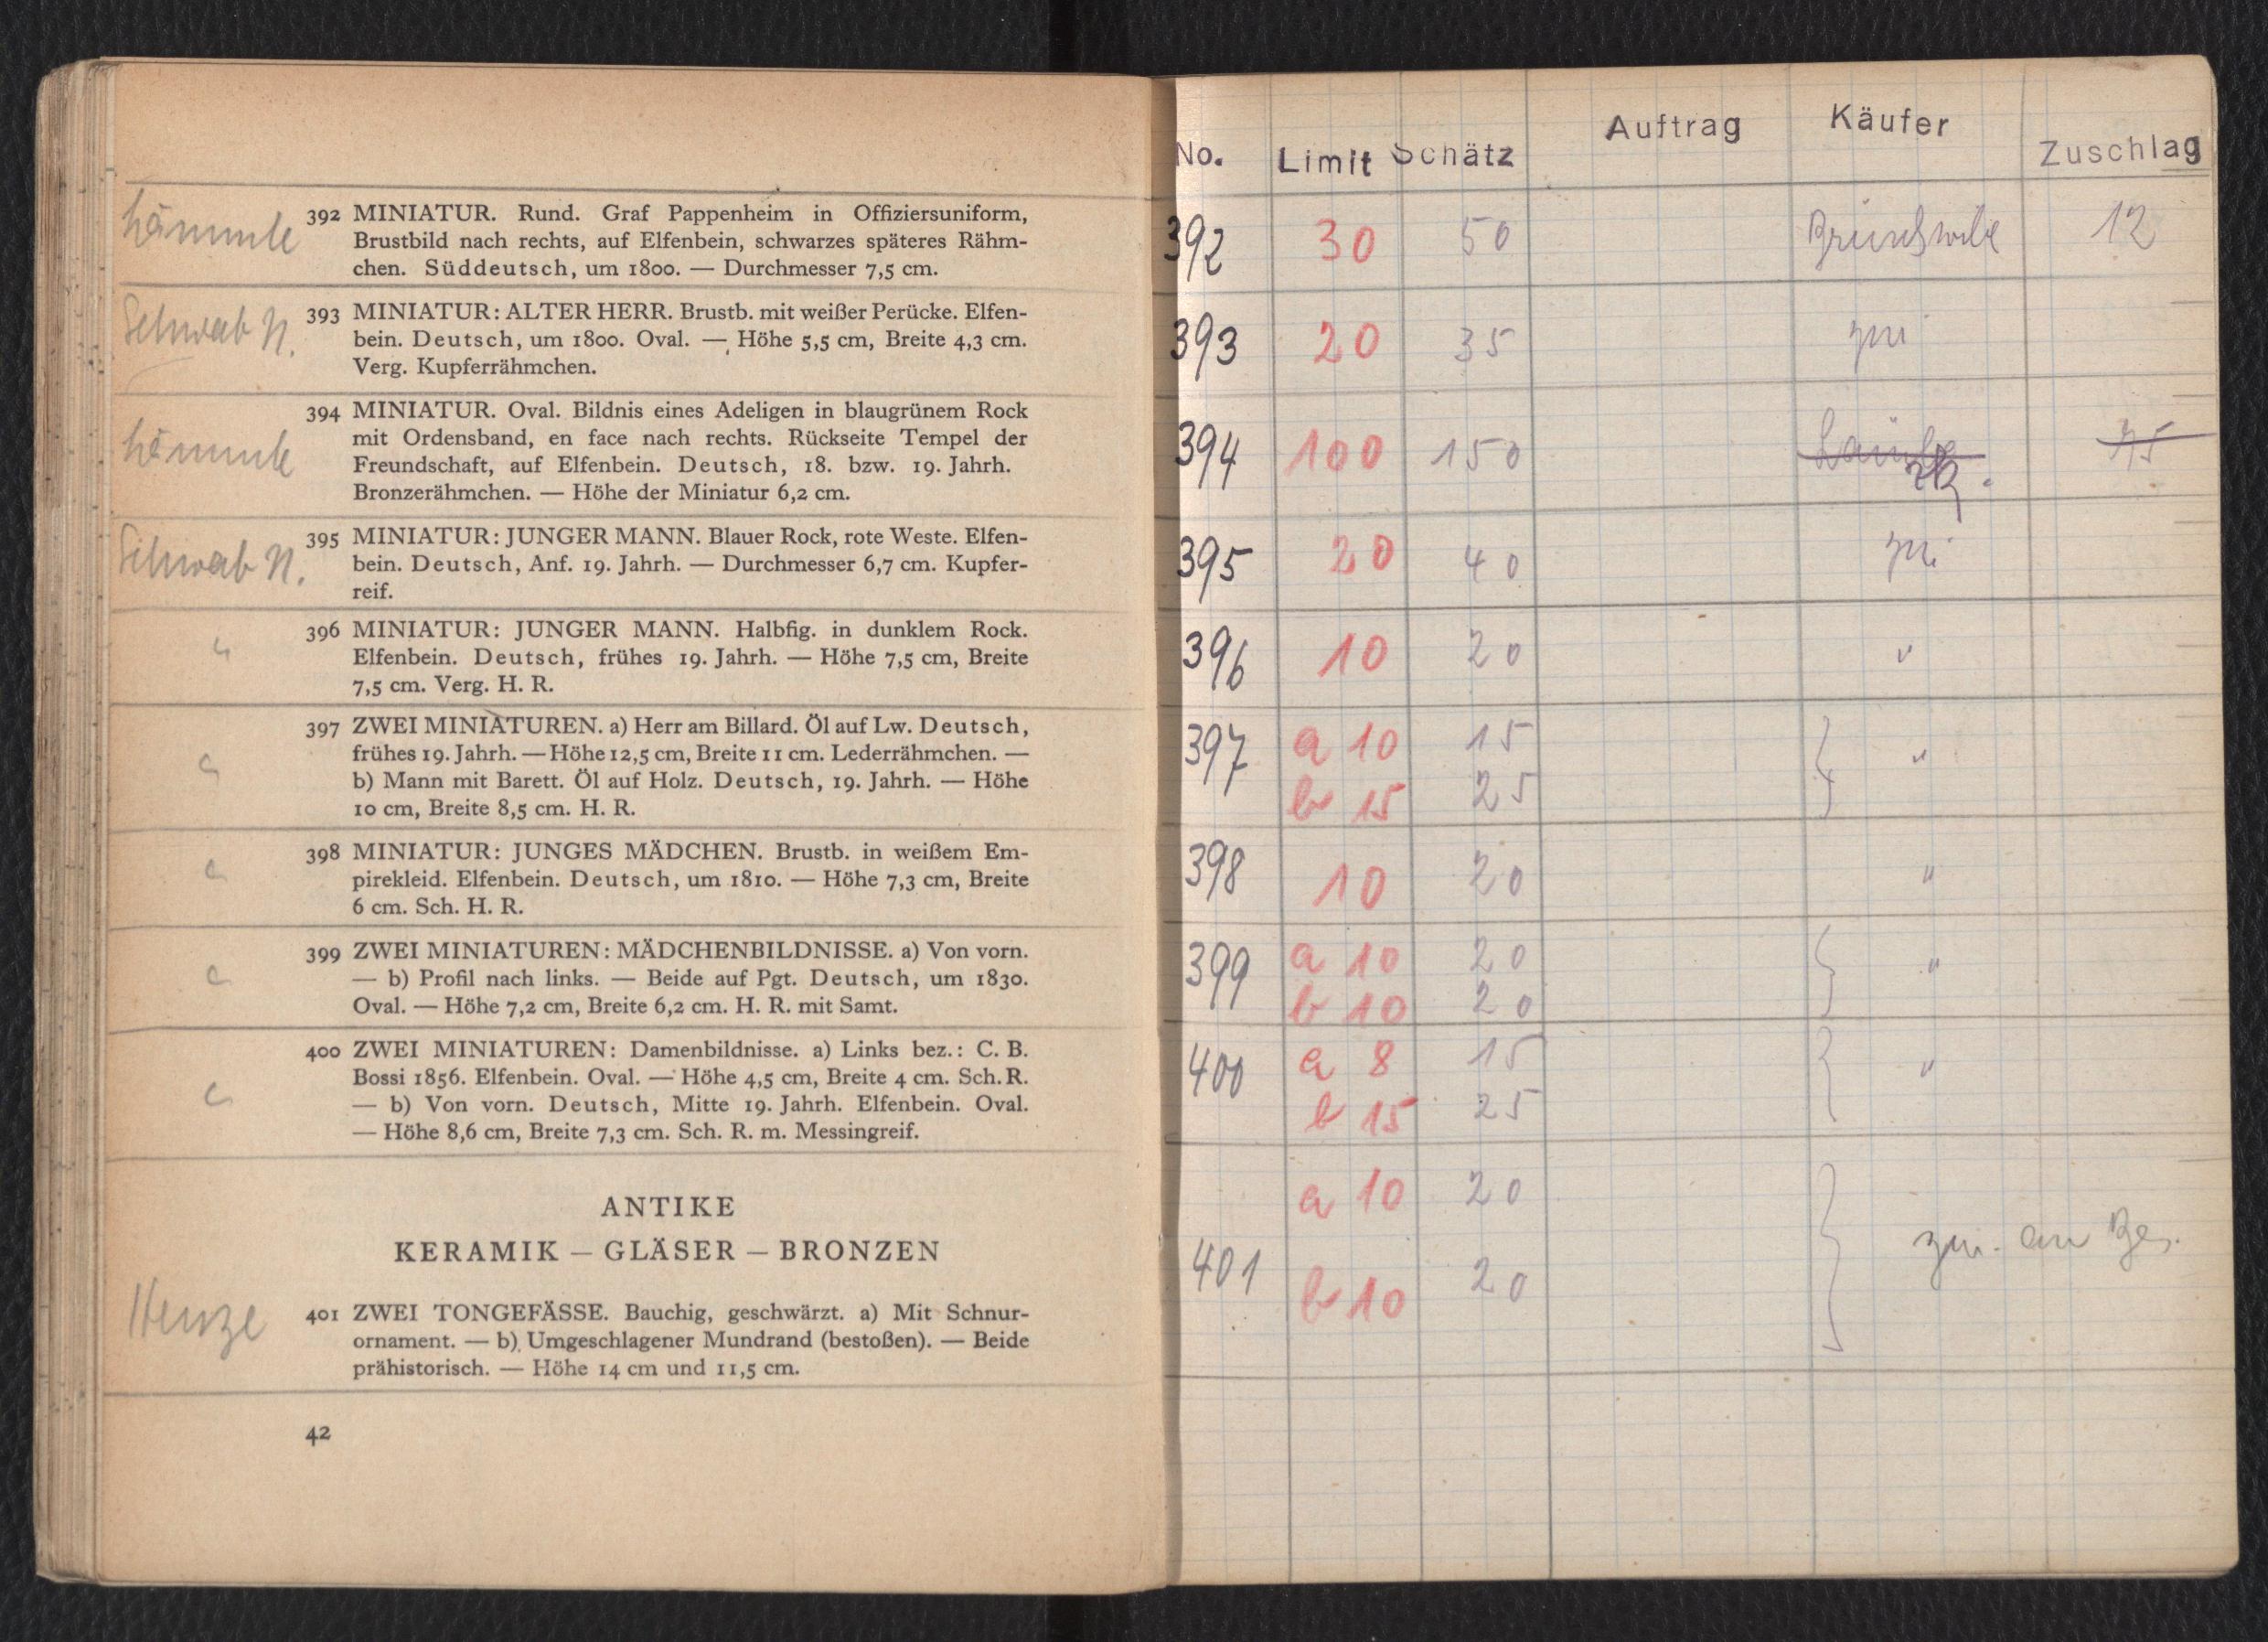 Lämmle
392 MINIATUR. Rund. Graf Pappenheim in Offiziersuniform,
Brustbild nach rechts, auf Elfenbein, schwarzes späteres Rähm-
chen. Süddeutsch, um 1800. — Durchmesser 7,5 cm.
Schwab N.
393 MINIATUR: ALTER HERR. Brustb. mit weißer Perücke. Elfen-
bein. Deutsch, um 1800. Oval. — Höhe 5,5 cm, Breite 4,3 cm.
Verg. Kupferrähmchen.
Lämmle
394 MINIATUR. Oval. Bildnis eines Adeligen in blaugrünem Rock
mit Ordensband, en face nach rechts. Rückseite Tempel der
Freundschaft, auf Elfenbein. Deutsch, 18. bzw. 19. Jahrh.
Bronzerähmchen. — Höhe der Miniatur 6,2 cm.
Schwab N.
395 MINIATUR: JUNGER MANN. Blauer Rock, rote Weste. Elfen-
bein. Deutsch, Anf. 19. Jahrh. — Durchmesser 6,7 cm. Kupfer-
reif.
"
396 MINIATUR: JUNGER MANN. Halbfig. in dunklem Rock.
Elfenbein. Deutsch, frühes 19. Jahrh. — Höhe 7,5 cm, Breite
7,5 cm. Verg. H. R.
397 ZWEI MINIATUREN. a) Herr am Billard. Öl auf Lw. Deutsch,
frühes 19. Jahrh. — Höhe 12,5 cm, Breite 11 cm. Lederrähmchen. —
b) Mann mit Barett. Öl auf Holz. Deutsch, 19. Jahrh. — Höhe
10 cm, Breite 8,5 cm. H. R.
398 MINIATUR: JUNGES MÄDCHEN. Brustb. in weißem Em-
pirekleid. Elfenbein. Deutsch, um 1810. — Höhe 7,3 cm, Breite
6 cm. Sch. H. R.
399 ZWEI MINIATUREN: MÄDCHENBILDNISSE. a) Von vorn.
— b) Profil nach links. — Beide auf Pgt. Deutsch, um 1830.
Oval. — Höhe 7,2 cm, Breite 6,2 cm. H. R. mit Samt.
400 ZWEI MINIATUREN: Damenbildnisse. a) Links bez.: C. B.
Bossi 1856. Elfenbein. Oval. — Höhe 4,5 cm, Breite 4 cm. Sch. R.
— b) Von vorn. Deutsch, Mitte 19. Jahrh. Elfenbein. Oval.
— Höhe 8,6 cm, Breite 7,3 cm. Sch. R. m. Messingreif.
ANTIKE
KERAMIK — GLÄSER — BRONZEN
Henze
401 ZWEI TONGEFÄSSE. Bauchig, geschwärzt. a) Mit Schnur-
ornament. — b) Umgeschlagener Mundrand (bestoßen). — Beide
prähistorisch. — Höhe 14 cm und 11,5 cm.
42
No. Limit Schätz Auftrag Käufer Zuschlag
392 30 50 12
393 20 35
394 100 150 75
395 20 40
396 10 20 "
397 a 10 15 "
b 15 25
398 10 20 "
399 a 10 20 "
b 10 20
400 a 8 15 "
b 15 25
401 a 10 20
b 10 20